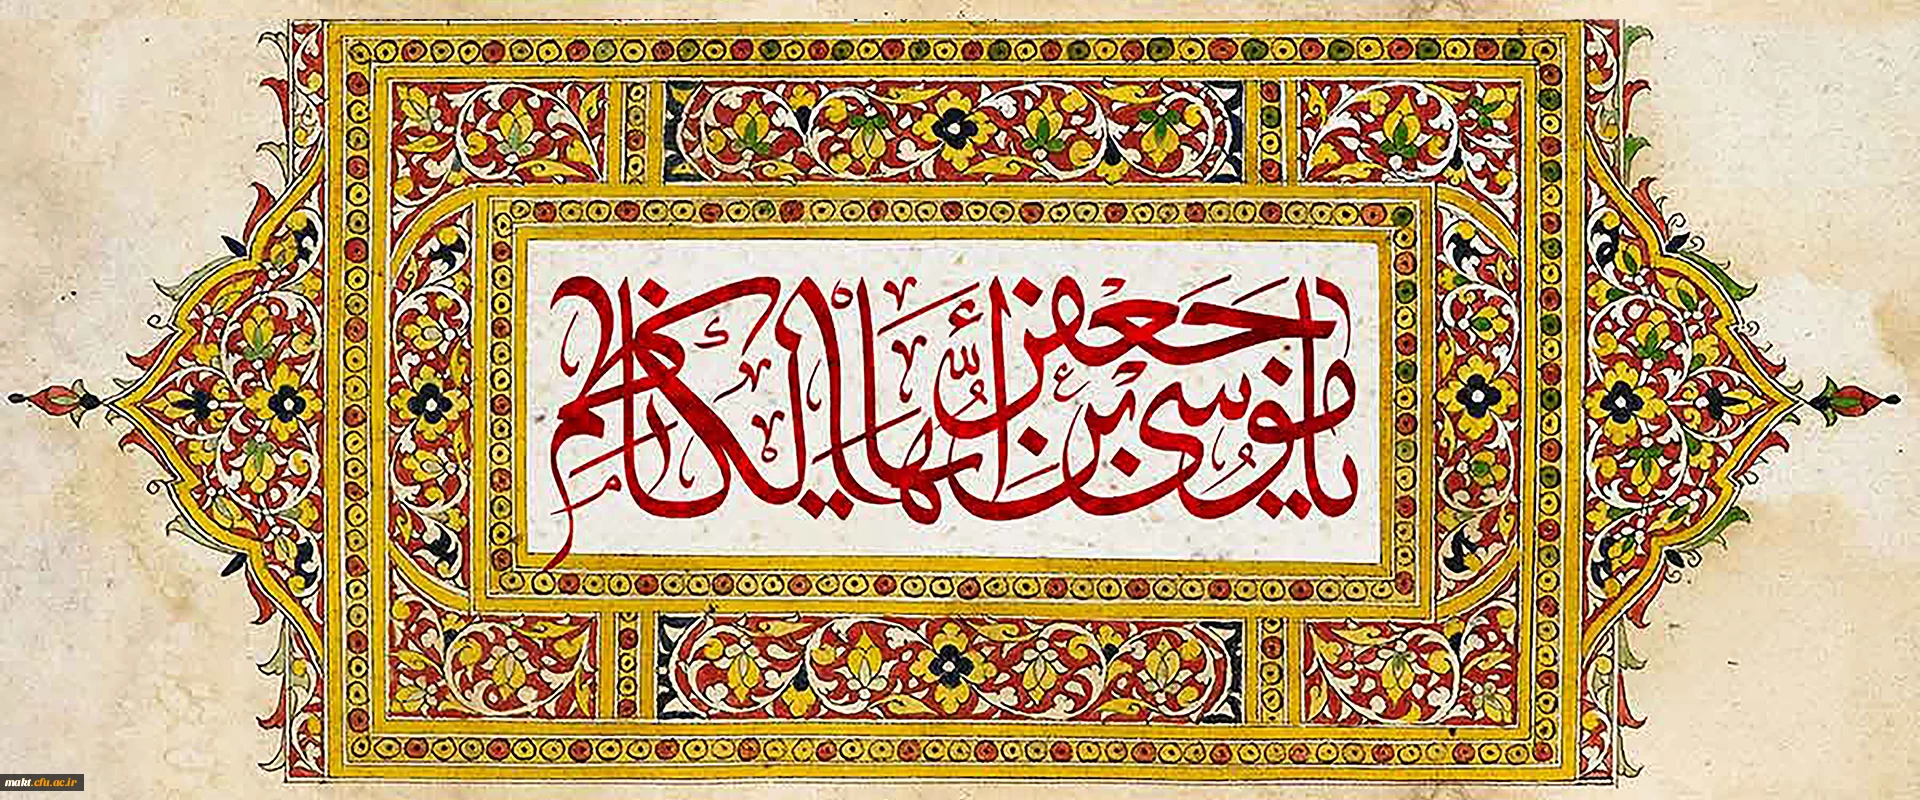 يا موسى بن جعفر أيها الكاظم
makt.cfu.ac.ir